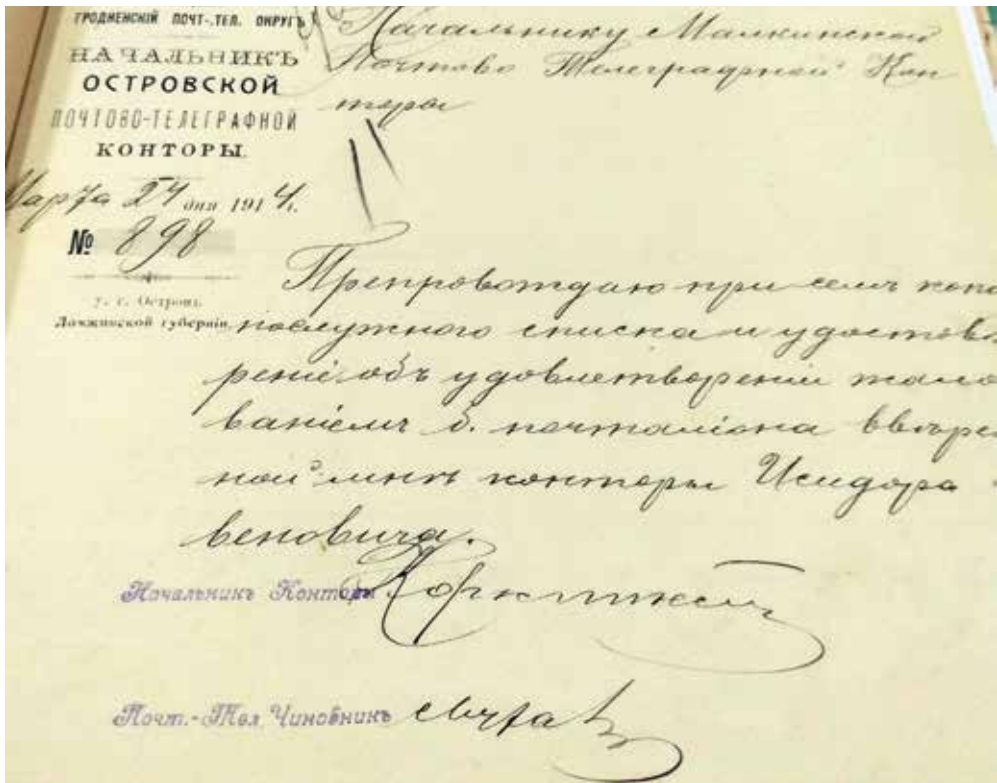 ГРОДНЕНСКІЙ ПОЧТ.-ТЕЛ. ОКРУГЪ
НАЧАЛЬНИКЪ
ОСТРОВСКОЙ
ПОЧТОВО-ТЕЛЕГРАФНОЙ
КОНТОРЫ.
Марта 24 дня 1914 г.
№ 898
у. г. Островъ.
Ломжинской губерніи.
Начальнику Малкинской
Почтово Телеграфной Кон
торы
Препровождаю при семъ копі
послужного списка и удостовѣ
реніе объ удовлетвореніи жало
ваніемъ б. почталіона ввѣрен
ной мнѣ конторы Исидора
веновича.
Начальникъ Конторы
Почт.-Тел. Чиновникъ